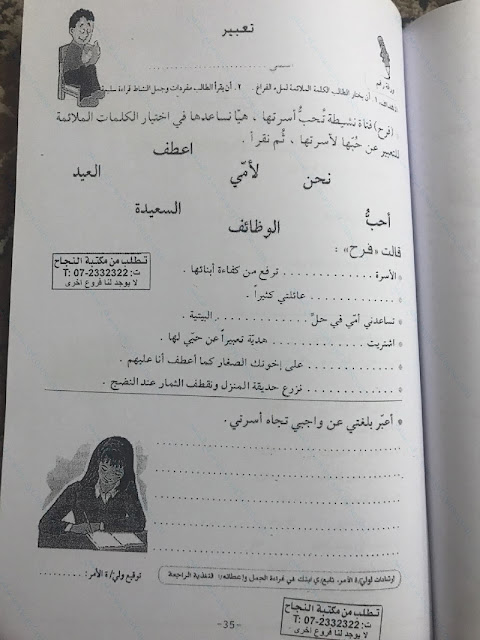 تعبير
ورقة رقم
اسمي
الأهداف: ١. أن يختار الطالب الكلمة الملائمة لملء الفراغ. ٢. أن يقرأ الطالب مفردات وجمل النشاط قراءة سليمة
(فرح) فتاة نشيطة تُحبُّ أسرتها ، هيّا نساعدها في اختيار الكلمات الملائمة
للتعبير عن حُبّها لأسرتها ، ثُم نقرأ .
اعطف
نحن لأمّي العيد
السعيدة
أحبُّ الوظائف
قالت «فرح» :
تطلب من مكتبة النجاح
ت: 07-2332322 :T
لا يوجد لنا فروع اخرى
* الأسرة ............ ترفع من كفاءة أبنائها .
............ عائلتي كثيراً .
* تساعدني أمّي في حلّ ............ البيتية .
* اشتريت ............ هديّة تعبيراً عن حبّي لها .
* ............ على إخوتك الصغار كما أعطف أنا عليهم .
* ............ نزرع حديقة المنزل ونقطف الثمار عند النضج .
* أعبّر بلغتي عن واجبي تجاه أسرتي .
إرشادات لولي/ة الأمر: تابع/ي ابنك في قراءة الجمل وإعطائه التغذية الراجعة
توقيع ولي/ة الأمر: ............
-35-
تطلب من مكتبة النجاح
ت: 07-2332322 :T
لا يوجد لنا فروع اخرى